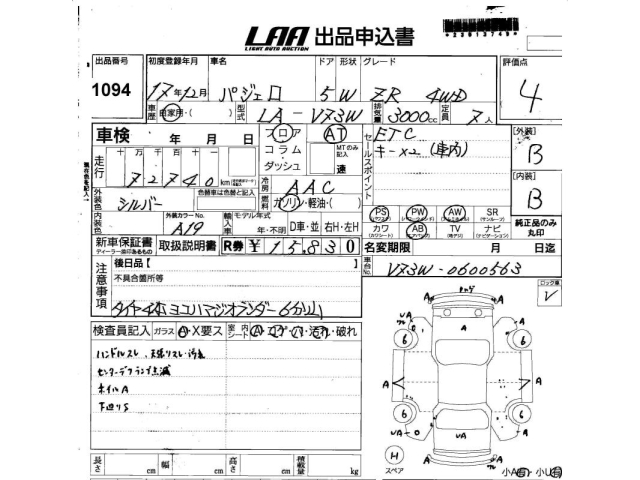 LAA 出品申込書
LIGHT AUTO AUCTION
出品番号 初度登録年月 車名 ドア 形状 グレード 評価点
1094 17年12月 パジェロ 5 W ZR 4WD 4
車歴 自家用・( ) 型式 LA-V73W 排気量 3000cc 定員 7人
車検 年 月 日
フロア
コラム・
ダッシュ
AT
MTのみ記入
速
セールスポイント
ETC
キーx2 (車内)
[外装]
B
[内装]
B
走行 十万 万 千 百 十
72740 km
冷房 AAC
燃料 ガソリン・軽油・( )
外装色 シルバー
色替車は色替と記入
内装色
外装カラーNo.
A19
輸入車
モデル年式
年・不明
D車・並 右H・左H
PS PW AW SR
(サンルーフ)
カワ AB TV ナビ
(カワシート) (ナビゲーション)
純正品のみ丸印
新車保証書 取扱説明書 R券 ¥15,830
名変期限 月 日迄
車台No. V73W-0600563
注意事項
後日品【 】
不具合箇所等
タイヤ4本ヨコハマジオランダー6分山
検査員記入 ガラス A・X要ス 室内シート A・コゲ・穴・汚れ・破れ
ハンドルスレ、天張リスレ・汚れ
センターデフランプ点滅
ホイルA
下廻りS
長さ cm 幅 cm 高さ cm 積載量 kg
A
6
6
6
6
A
A
UA
A
H
スペア
小A 小U